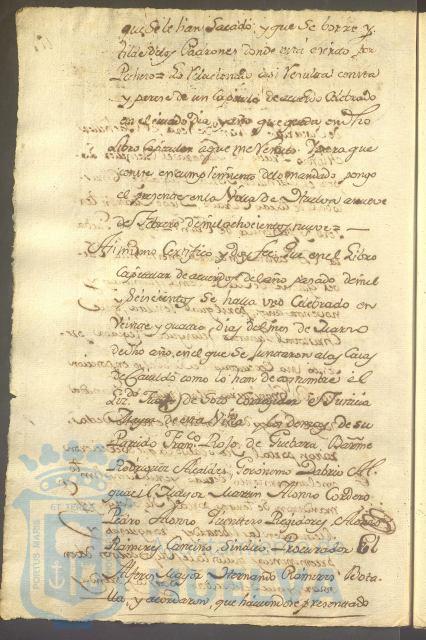 que se le han sacado, y que se borre y
tilde de los Padrones donde está escrito por
Pechero= Lo relacionado así resulta consta
y parese de un Capitulo de acuerdo celebrado
en el citado dia, y año que queda en dho
Libro Capitular a que me remito. Y para que
conste en cumplimiento de lo mandado pongo
el presente en la Villa de a nueve
de Febrero de mil ochocientos nueve =
Asimismo Certifico y doy fee: Que en el Libro
Capitular de acuerdos del año pasado de mil
y seiscientos se halla uno Celebrado en
Veinte y quatro dias del mes de
dho año, en el que se juntaron a las Casas
de Cavildo como lo han de costumbre el
Lizdo. de Soto Corregidor e Justicia
Mayor de esta Villa, y los demas de su
Partido Franco. de Guebara, Barme.
Rodriguez Alcaldes, Geronimo Al
guacil Mayor Martin Alonso Cordero
Pedro Alonso Regidores, Alonso
Ramirez Cancino, Sindico Procurador El
Alferez Mayor Hernando Ramirez Bota
lla, y acordaron, que haviendose presentado
PORTUS MARIS
ET TERRÆ